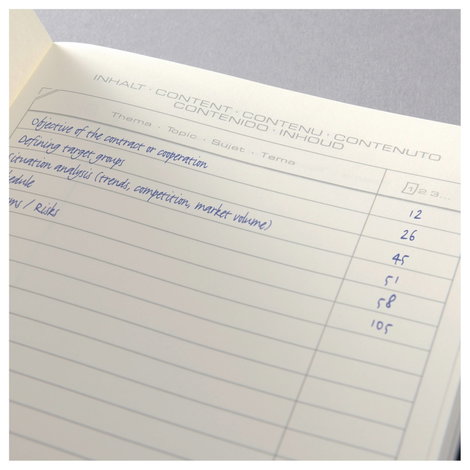 INHALT · CONTENT · CONTENU · CONTENUTO
CONTENIDO · INHOUD
Thema · Topic · Sujet · Tema 123...
Objective of the contract or cooperation 12
Defining target groups 26
ituation analysis (trends, competition, market volume) 45
edule 51
ms / Risks 58
105